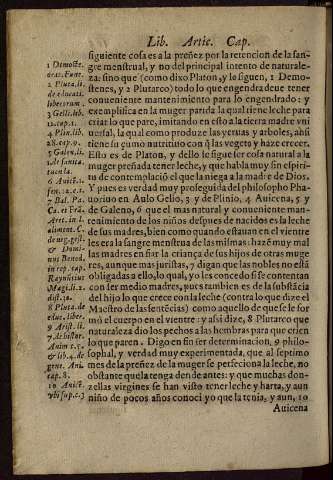 Lib. Artic. Cap.
siguiente cosa es a la preñez por la retencion de la san-
gre menstrual, y no del principal intento de naturale-
za: sino que (como dixo Platon, y le siguen, 1 Demo-
stenes, y 2 Plutarco) todo lo que engendra deue tener
conueniente mantenimiento para lo engendrado: y
exemplifica en la muger parida la qual tiene leche para
criar lo que pare, imitando en esto a la tierra madre vni
uersal, la qual como produze las yeruas y arboles, ahsi
tiene su çumo nutritiuo con q̃ las vegeta y haze crecer.
Esto es de Platon, y dello se sigue ser cosa natural a la
muger preñada tener leche, y que habla muy sin espiri-
tu de contemplaciõ el que la niega a la madre de Dios.
Y pues es verdad muy proseguida del philosopho Pha-
uorino en Aulo Gelio, 3 y de Plinio, 4 Auicena, 5 y
de Galeno, 6 que el mas natural y conueniente man-
tenimiento de los niños despues de nacidos es la leche
de sus madres, bien como quando estauan en el vientre
les era la sangre menstrua de las mismas: hazẽ muy mal
las madres en fiar la criança de sus hijos de otras muge
res, aunque mas juristas, 7 digan que las nobles no estã
obligadas a ello, lo qual, yo les concedo si se contentan
con ser medio madres, pues tambien es de la substãcia
del hijo lo que crece con la leche (contra lo que dize el
Maestro de las sentẽcias) como aquello de que se le for
mò el cuerpo en el vientre: y asi dize, 8 Plutarco que
naturaleza dio los pechos a las hembras para que crien
lo que paren. Digo en fin ser determinacion, 9 philo-
sophal, y verdad muy experimentada, que al septimo
mes de la preñez de la muger se perfeciona la leche, no
obstante que la tenga dende antes: y que muchas don-
zellas virgines se han visto tener leche y harta, y aun
niño de pocos años conoci yo que la tenia, y aun, 10
Auicena
1 Demoste.
2 Pluta. li.
de educati.
liberorum.
3 Gelli. lib.
12. cap. 1.
4 Plin. lib.
28. cap. 9.
5 Galen. li.
1. de sanita.
tuenla.
6 Auicẽ. 1.
fen.
7 Bal. Pa.
aliment. C.
& Domi-
nus Bened.
in rep. cap.
Raynutius
Magi. li. 2.
dist. 30.
8 Pluta. de
educ. liber.
9 Arist. li.
7. de histor.
Anim. c. 5.
& lib. 4. de
gene. Ani.
cap. 8.
10 Auicẽ.
vbi sup. c. 3